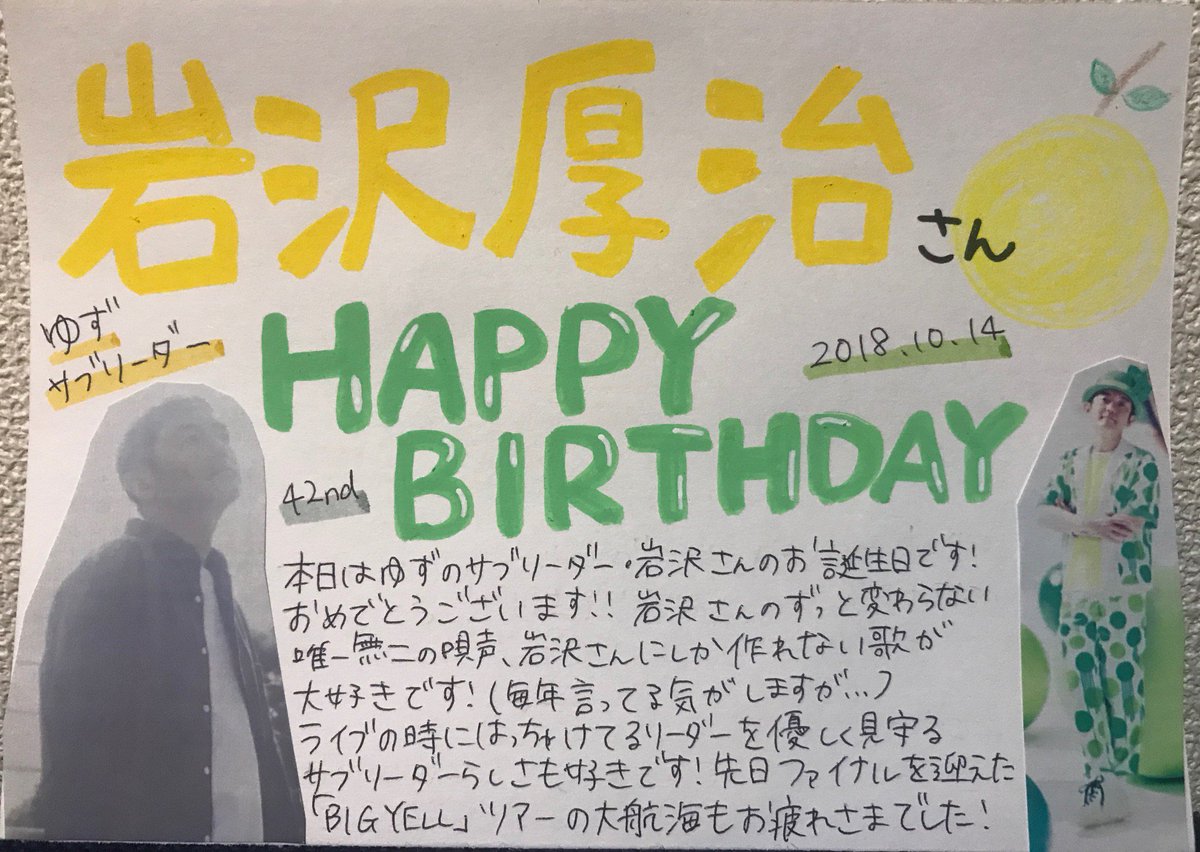 岩沢厚治さん
ゆず
サブリーダー
HAPPY
2018.10.14
BIRTHDAY
42nd
本日はゆずのサブリーダー・岩沢さんのお誕生日です!
おめでとうございます!! 岩沢さんのずっと変わらない
唯一無二の唄声、岩沢さんにしか作れない歌が
大好きです!(毎年言ってる気がしますが...)
ライブの時にはっちゃけてるリーダーを優しく見守る
サブリーダーらしさも好きです!先日ファイナルを迎えた
「BIG YELL」ツアーの大航海もお疲れさまでした!